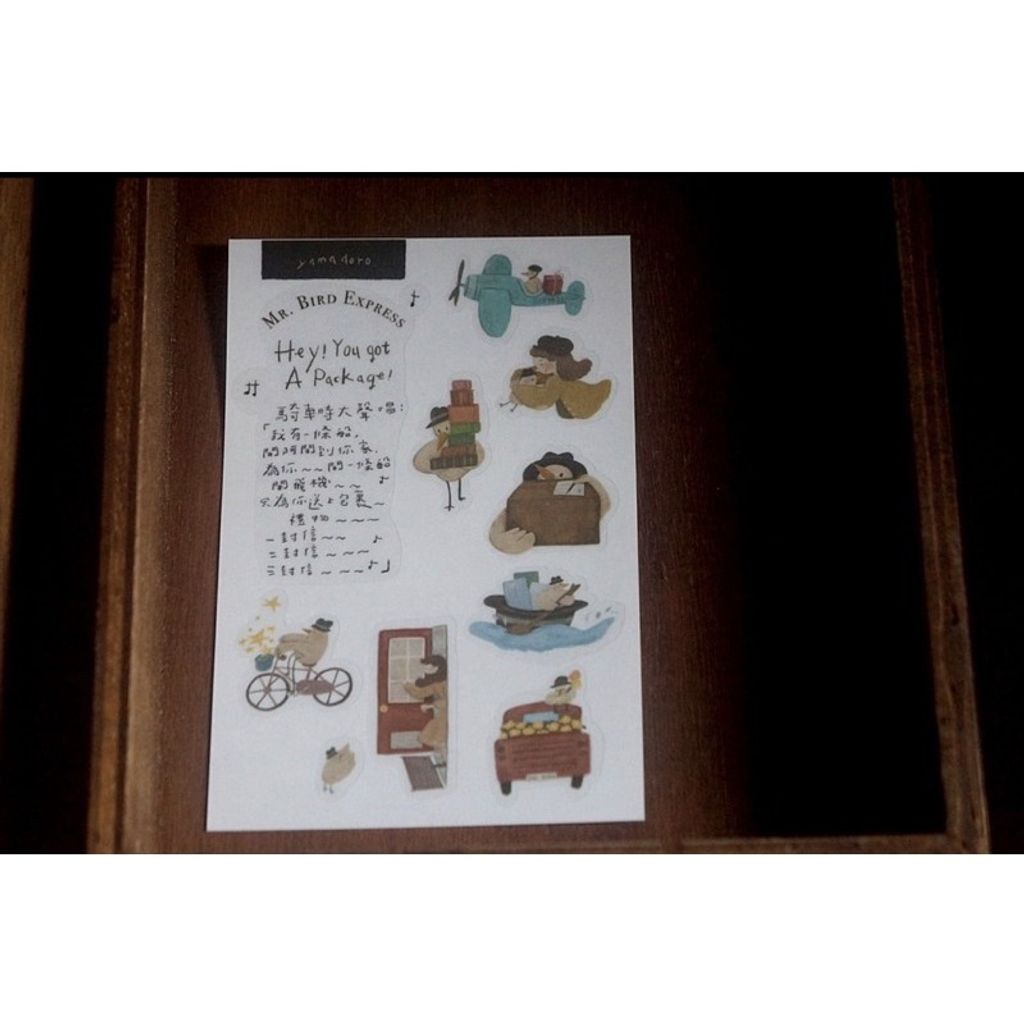 yamadoro
MR. BIRD EXPRESS
Hey! You got
A Package!
騎車時大聲唱:
「我有一條船,
開阿開到你家.
為你~~開一條船
開飛機~~
只為你送上包裹~
禮物~~~
一封信~~
二封信~~~
三封信~~~」